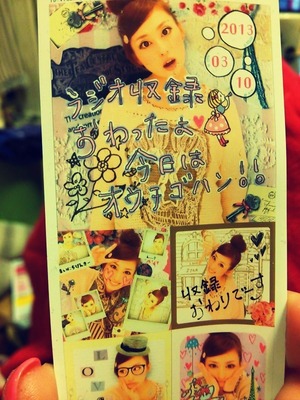 2013
03
10
ラジオ収録
おわったよ
今日は
オウチゴハン!!
収録
おわりでーす
LOV